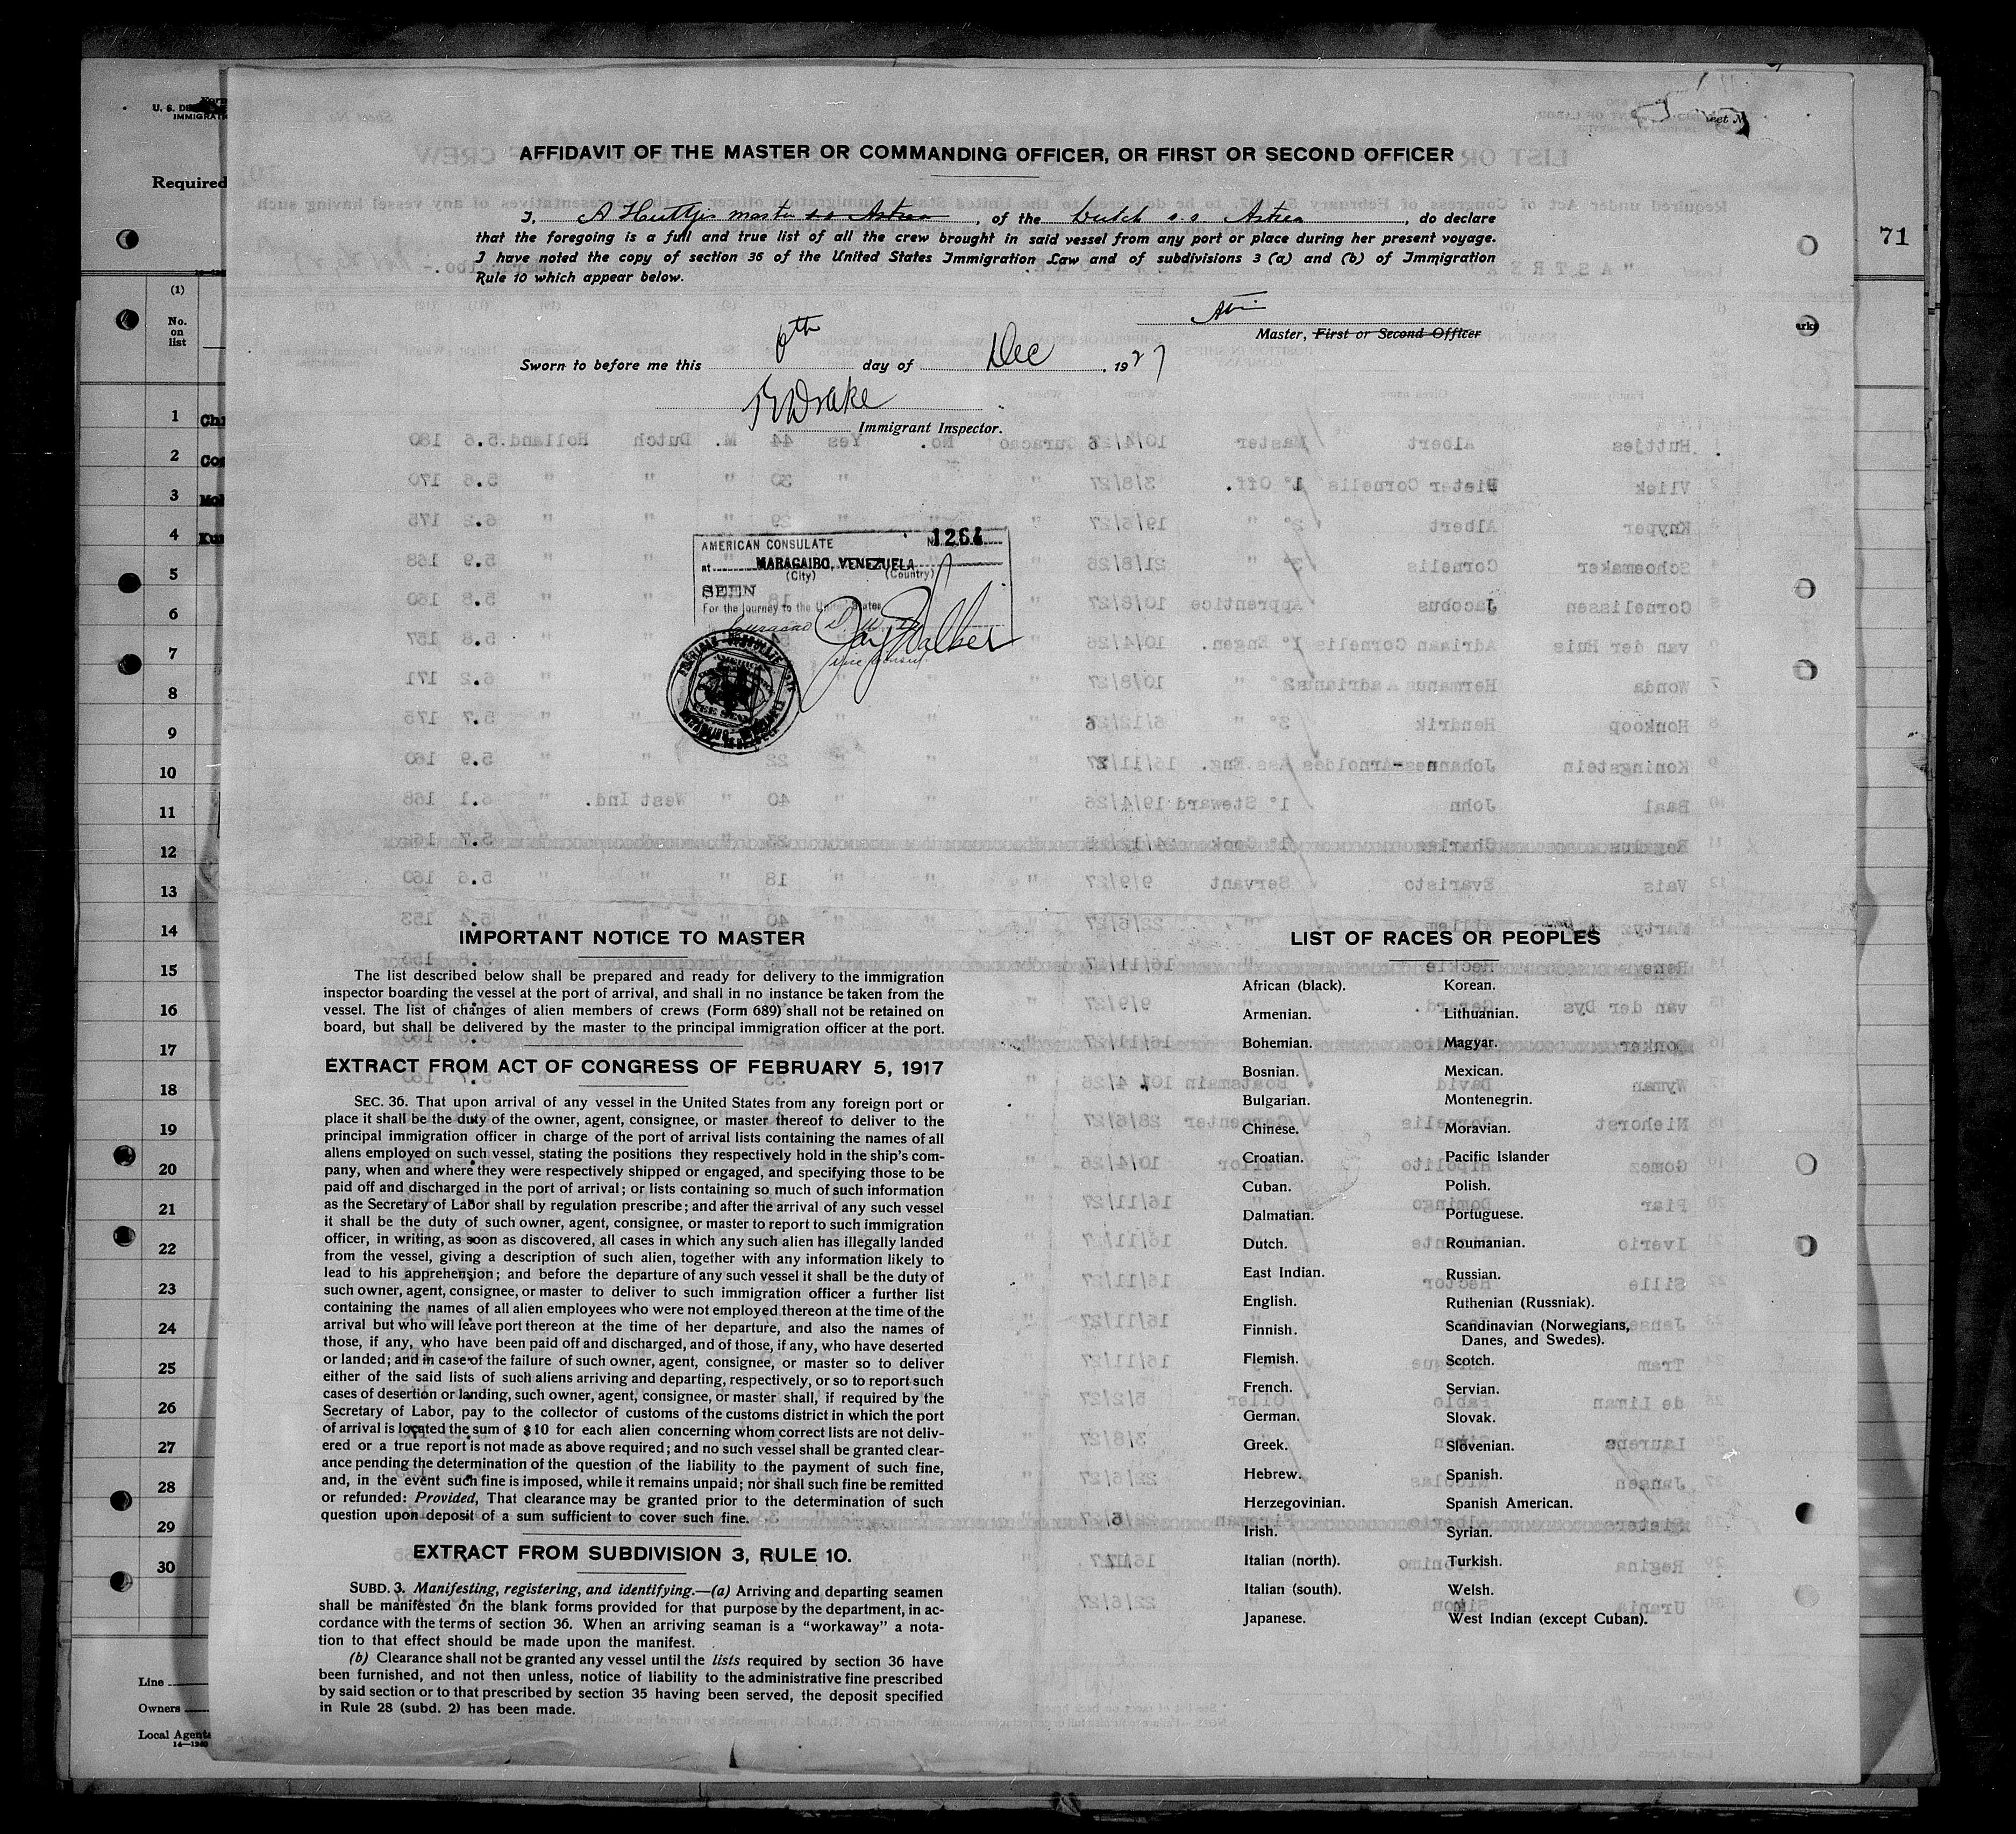 U. S. DE
IMMIGRAT
Form
Required
(1)
No.
on
list
1
2
3
4
5
6
7
8
9
10
11
12
13
14
15
16
17
18
19
20
21
22
23
24
25
26
27
28
29
30
Line
Owners
Local Agents
71
AFFIDAVIT OF THE MASTER OR COMMANDING OFFICER, OR FIRST OR SECOND OFFICER
I, A Huttjes master ss Astrea, of the Dutch s.s. Astrea, do declare
that the foregoing is a full and true list of all the crew brought in said vessel from any port or place during her present voyage.
I have noted the copy of section 36 of the United States Immigration Law and of subdivisions 3 (a) and (b) of Immigration
Rule 10 which appear below.
Master, First or Second Officer
Sworn to before me this 6th day of Dec, 1927
Drake
Immigrant Inspector.
AMERICAN CONSULATE No. 1264
at MARACAIBO, VENEZUELA
(City) (Country)
SEEN
For the journey to the United States
Vice Consul.
IMPORTANT NOTICE TO MASTER
The list described below shall be prepared and ready for delivery to the immigration
inspector boarding the vessel at the port of arrival, and shall in no instance be taken from the
vessel. The list of changes of alien members of crews (Form 689) shall not be retained on
board, but shall be delivered by the master to the principal immigration officer at the port.
EXTRACT FROM ACT OF CONGRESS OF FEBRUARY 5, 1917
SEC. 36. That upon arrival of any vessel in the United States from any foreign port or
place it shall be the duty of the owner, agent, consignee, or master thereof to deliver to the
principal immigration officer in charge of the port of arrival lists containing the names of all
aliens employed on such vessel, stating the positions they respectively hold in the ship's com-
pany, when and where they were respectively shipped or engaged, and specifying those to be
paid off and discharged in the port of arrival; or lists containing so much of such information
as the Secretary of Labor shall by regulation prescribe; and after the arrival of any such vessel
it shall be the duty of such owner, agent, consignee, or master to report to such immigration
officer, in writing, as soon as discovered, all cases in which any such alien has illegally landed
from the vessel, giving a description of such alien, together with any information likely to
lead to his apprehension; and before the departure of any such vessel it shall be the duty of
such owner, agent, consignee, or master to deliver to such immigration officer a further list
containing the names of all alien employees who were not employed thereon at the time of the
arrival but who will leave port thereon at the time of her departure, and also the names of
those, if any, who have been paid off and discharged, and of those, if any, who have deserted
or landed; and in case of the failure of such owner, agent, consignee, or master so to deliver
either of the said lists of such aliens arriving and departing, respectively, or so to report such
cases of desertion or landing, such owner, agent, consignee, or master shall, if required by the
Secretary of Labor, pay to the collector of customs of the customs district in which the port
of arrival is located the sum of $10 for each alien concerning whom correct lists are not deliv-
ered or a true report is not made as above required; and no such vessel shall be granted clear-
ance pending the determination of the question of the liability to the payment of such fine,
and, in the event such fine is imposed, while it remains unpaid; nor shall such fine be remitted
or refunded: Provided, That clearance may be granted prior to the determination of such
question upon deposit of a sum sufficient to cover such fine.
EXTRACT FROM SUBDIVISION 3, RULE 10.
SUBD. 3. Manifesting, registering, and identifying.—(a) Arriving and departing seamen
shall be manifested on the blank forms provided for that purpose by the department, in ac-
cordance with the terms of section 36. When an arriving seaman is a "workaway" a nota-
tion to that effect should be made upon the manifest.
(b) Clearance shall not be granted any vessel until the lists required by section 36 have
been furnished, and not then unless, notice of liability to the administrative fine prescribed
by said section or to that prescribed by section 35 having been served, the deposit specified
in Rule 28 (subd. 2) has been made.
LIST OF RACES OR PEOPLES
African (black).
Armenian.
Bohemian.
Bosnian.
Bulgarian.
Chinese.
Croatian.
Cuban.
Dalmatian.
Dutch.
East Indian.
English.
Finnish.
Flemish.
French.
German.
Greek.
Hebrew.
Herzegovinian.
Irish.
Italian (north).
Italian (south).
Japanese.
Korean.
Lithuanian.
Magyar.
Mexican.
Montenegrin.
Moravian.
Pacific Islander
Polish.
Portuguese.
Roumanian.
Russian.
Ruthenian (Russniak).
Scandinavian (Norwegians,
Danes, and Swedes).
Scotch.
Servian.
Slovak.
Slovenian.
Spanish.
Spanish American.
Syrian.
Turkish.
Welsh.
West Indian (except Cuban).